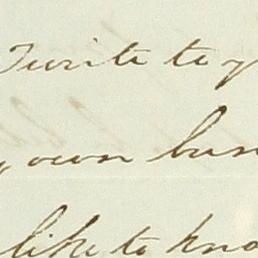 write to y
own bus
like to kno